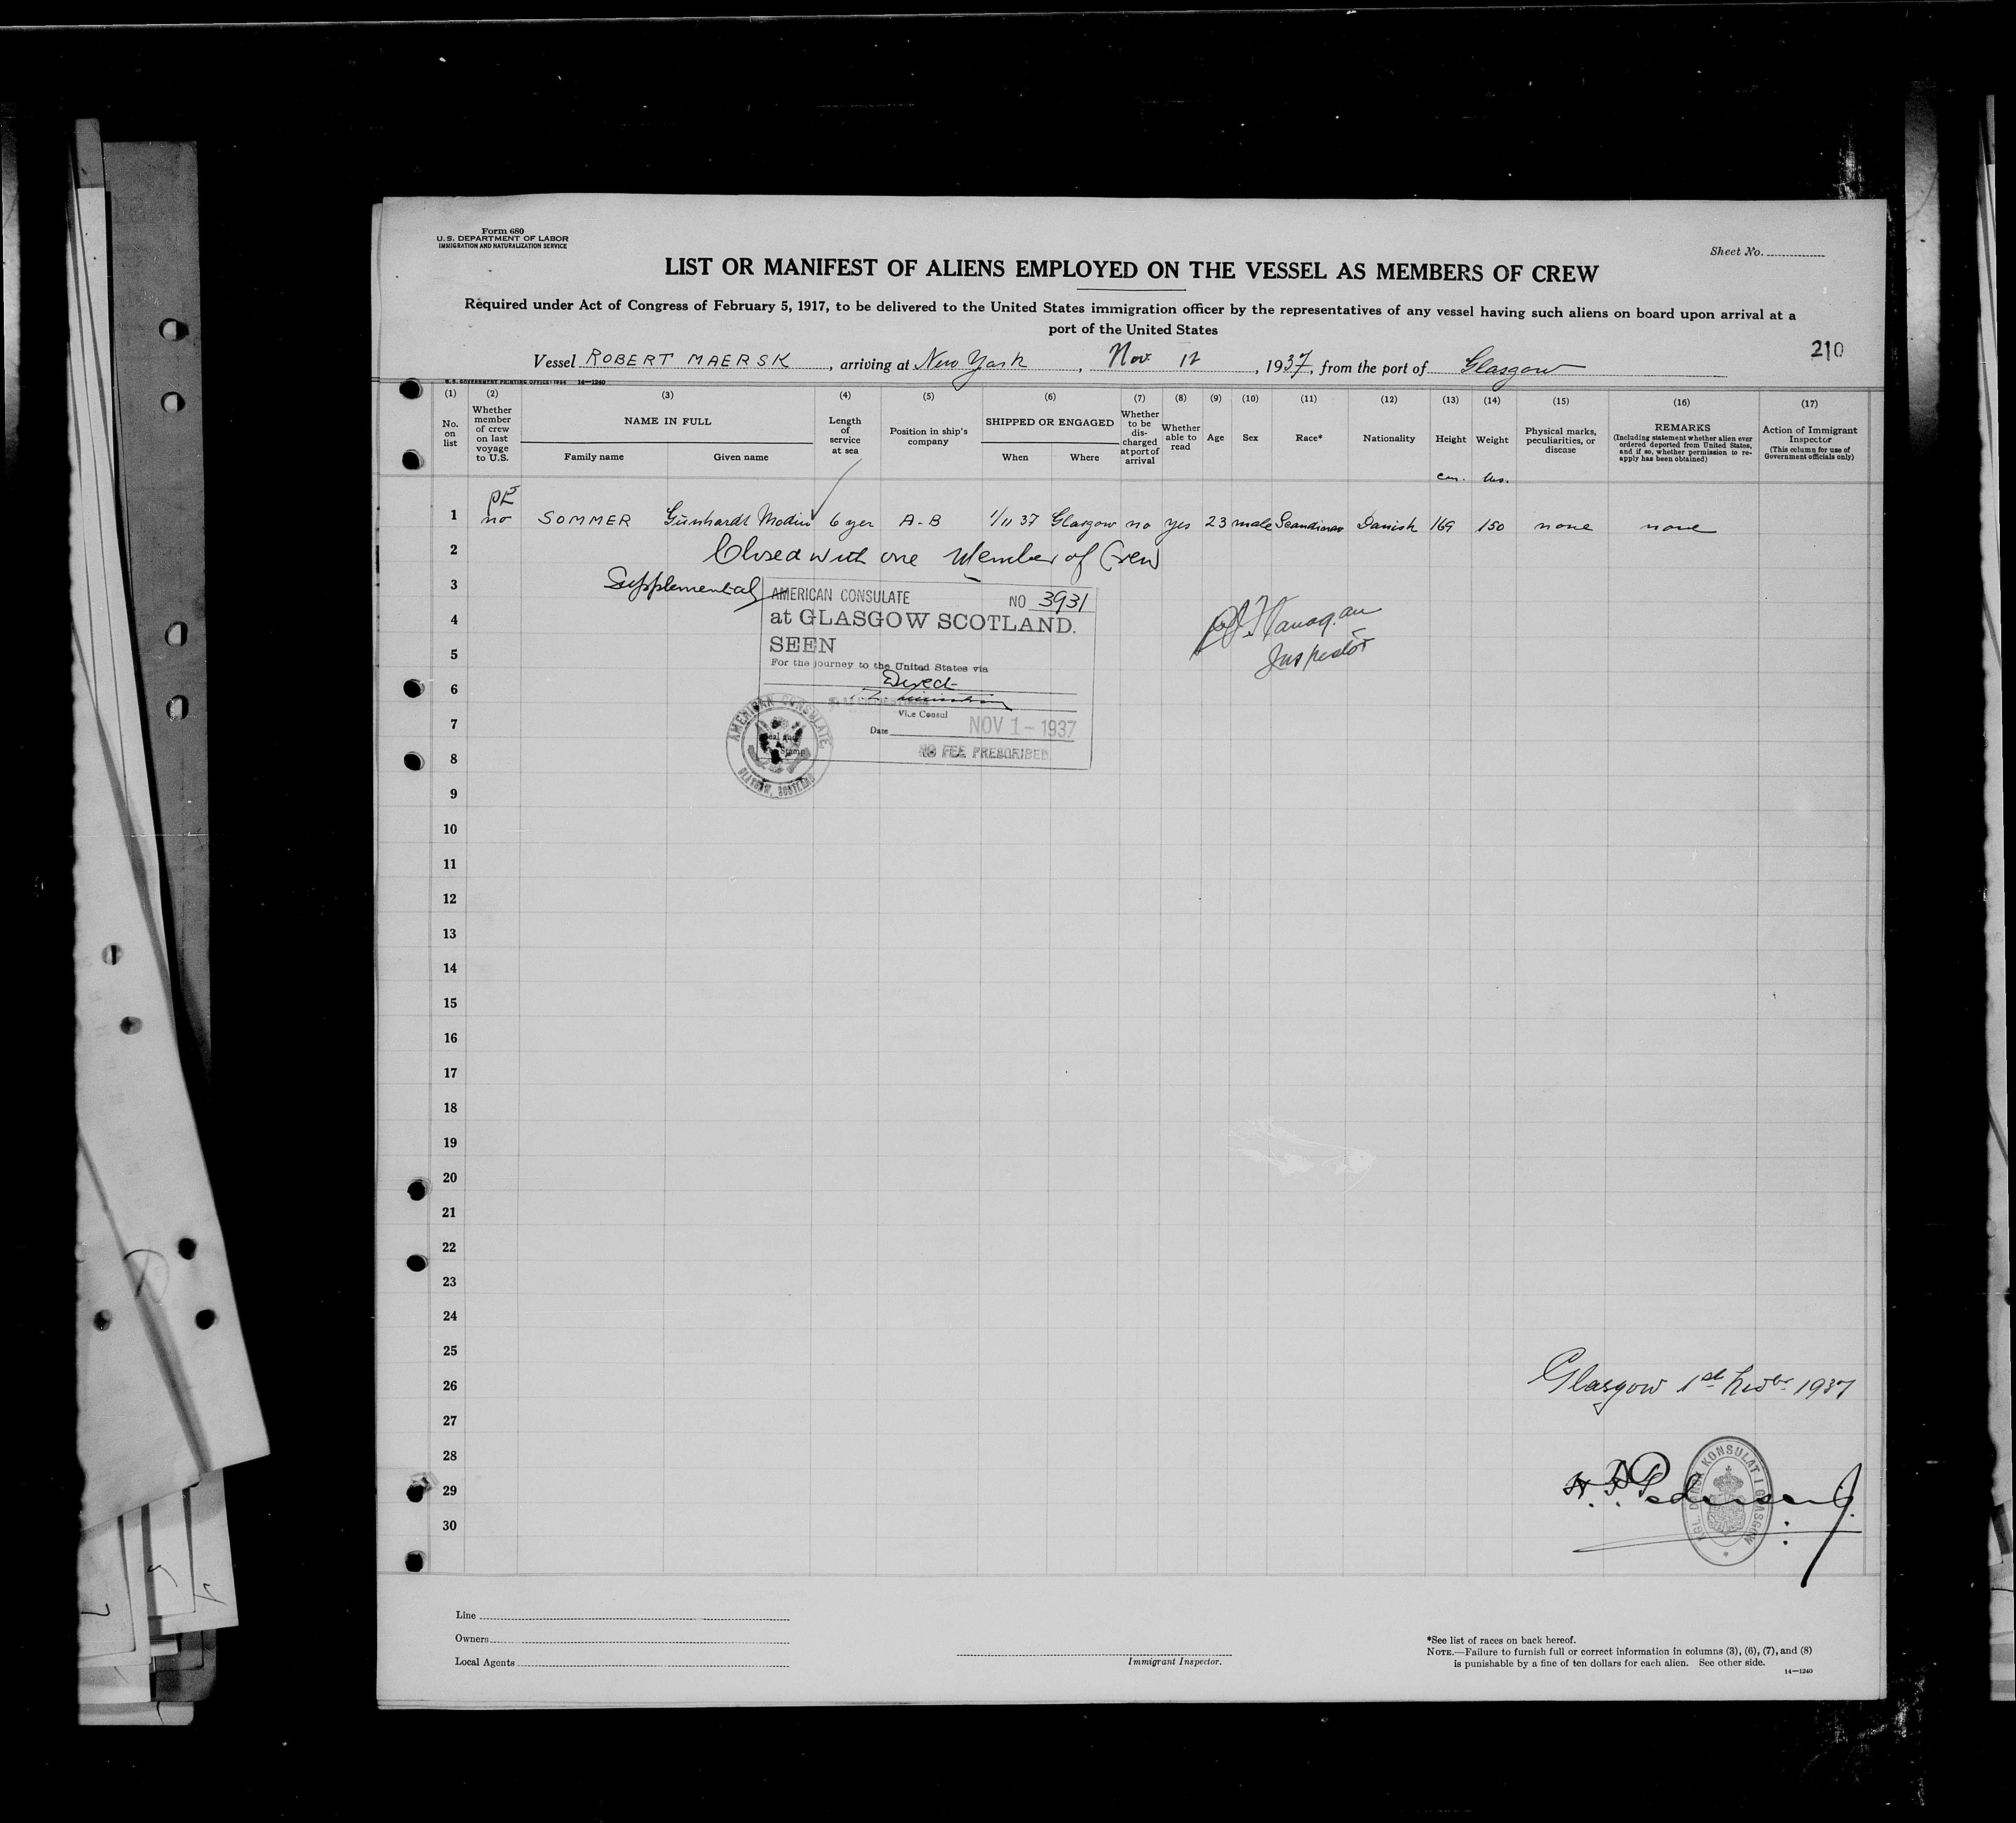 Form 680
U. S. DEPARTMENT OF LABOR
IMMIGRATION AND NATURALIZATION SERVICE
Sheet No.
LIST OR MANIFEST OF ALIENS EMPLOYED ON THE VESSEL AS MEMBERS OF CREW
Required under Act of Congress of February 5, 1917, to be delivered to the United States immigration officer by the representatives of any vessel having such aliens on board upon arrival at a
port of the United States
210
Vessel ROBERT MAERSK, arriving at New York, Nov 12, 1937, from the port of Glasgow
U. S. GOVERNMENT PRINTING OFFICE: 1934 14—1240
(1) (2) (3) (4) (5) (6) (7) (8) (9) (10) (11) (12) (13) (14) (15) (16) (17)
No. on list
Whether member of crew on last voyage to U.S.
NAME IN FULL
Family name
Given name
Length of service at sea
Position in ship's company
SHIPPED OR ENGAGED
When
Where
Whether to be discharged at port of arrival
Whether able to read
Age
Sex
Race*
Nationality
Height
Weight
Physical marks, peculiarities, or disease
REMARKS
(Including statement whether alien ever ordered deported from United States, and if so, whether permission to reapply has been obtained)
Action of Immigrant Inspector
(This column for use of Government officials only)
cm. lbs.
1 no SOMMER Gunhardt Modin 6 yer A-B 1/11 37 Glasgow no yes 23 male Scandinav Danish 169 150 none none
2 Closed with one Member of Crew
3 Supplemental
AMERICAN CONSULATE NO 3931
at GLASGOW SCOTLAND.
SEEN
For the journey to the United States via
Direct
Vice Consul
Date NOV 1 - 1937
NO FEE PRESCRIBED
AMERICAN CONSULATE
GLASGOW, SCOTLAND
Flanagan
Inspector
4
5
6
7
8
9
10
11
12
13
14
15
16
17
18
19
20
21
22
23
24
25
26
27
28
29
30
Glasgow 1st Novbr 1937
Pedersen
KGL. DANSK KONSULAT I GLASGOW
Line
Owners
Local Agents
Immigrant Inspector.
*See list of races on back hereof.
NOTE.—Failure to furnish full or correct information in columns (3), (6), (7), and (8)
is punishable by a fine of ten dollars for each alien. See other side.
14—1240